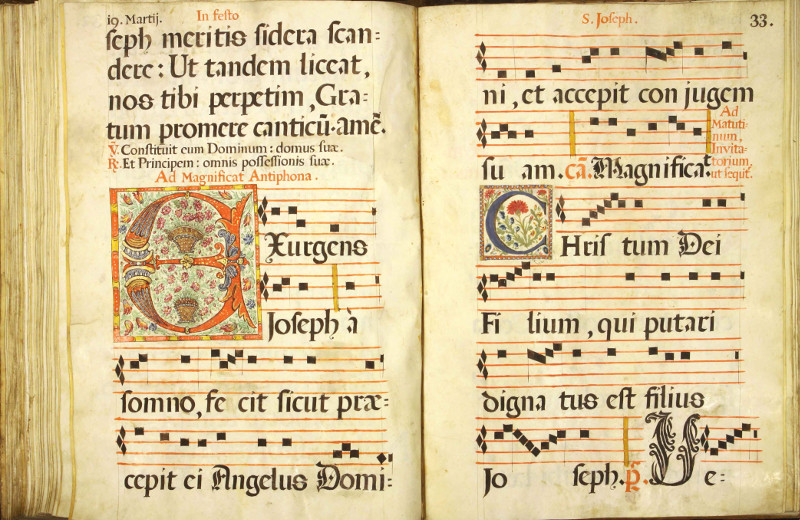 19. Martij. In festo
seph meritis sidera scan=
dere: Ut tandem liceat,
nos tibi perpetim, Gra=
tum promere canticū. amē.
℣. Constituit eum Dominum: domus suæ.
℟. Et Principem: omnis possessionis suæ.
Ad Magnificat Antiphona.
EXurgens
Joseph à
somno, fe cit sicut præ=
cepit ei Angelus Domi=
S. Joseph. 33.
ni, et accepit con jugem
su am. cā. Magnificat
Ad
Matuti=
num.
Invita=
torium,
ut sequit.
CHris tum Dei
Fi lium, qui putari
digna tus est filius
Jo seph. p̄. Ve=